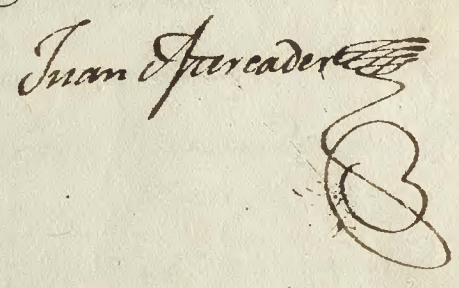 Juan Mercader